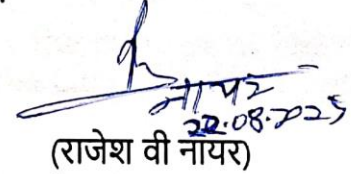 नायर
22.08.2025
(राजेश वी नायर)